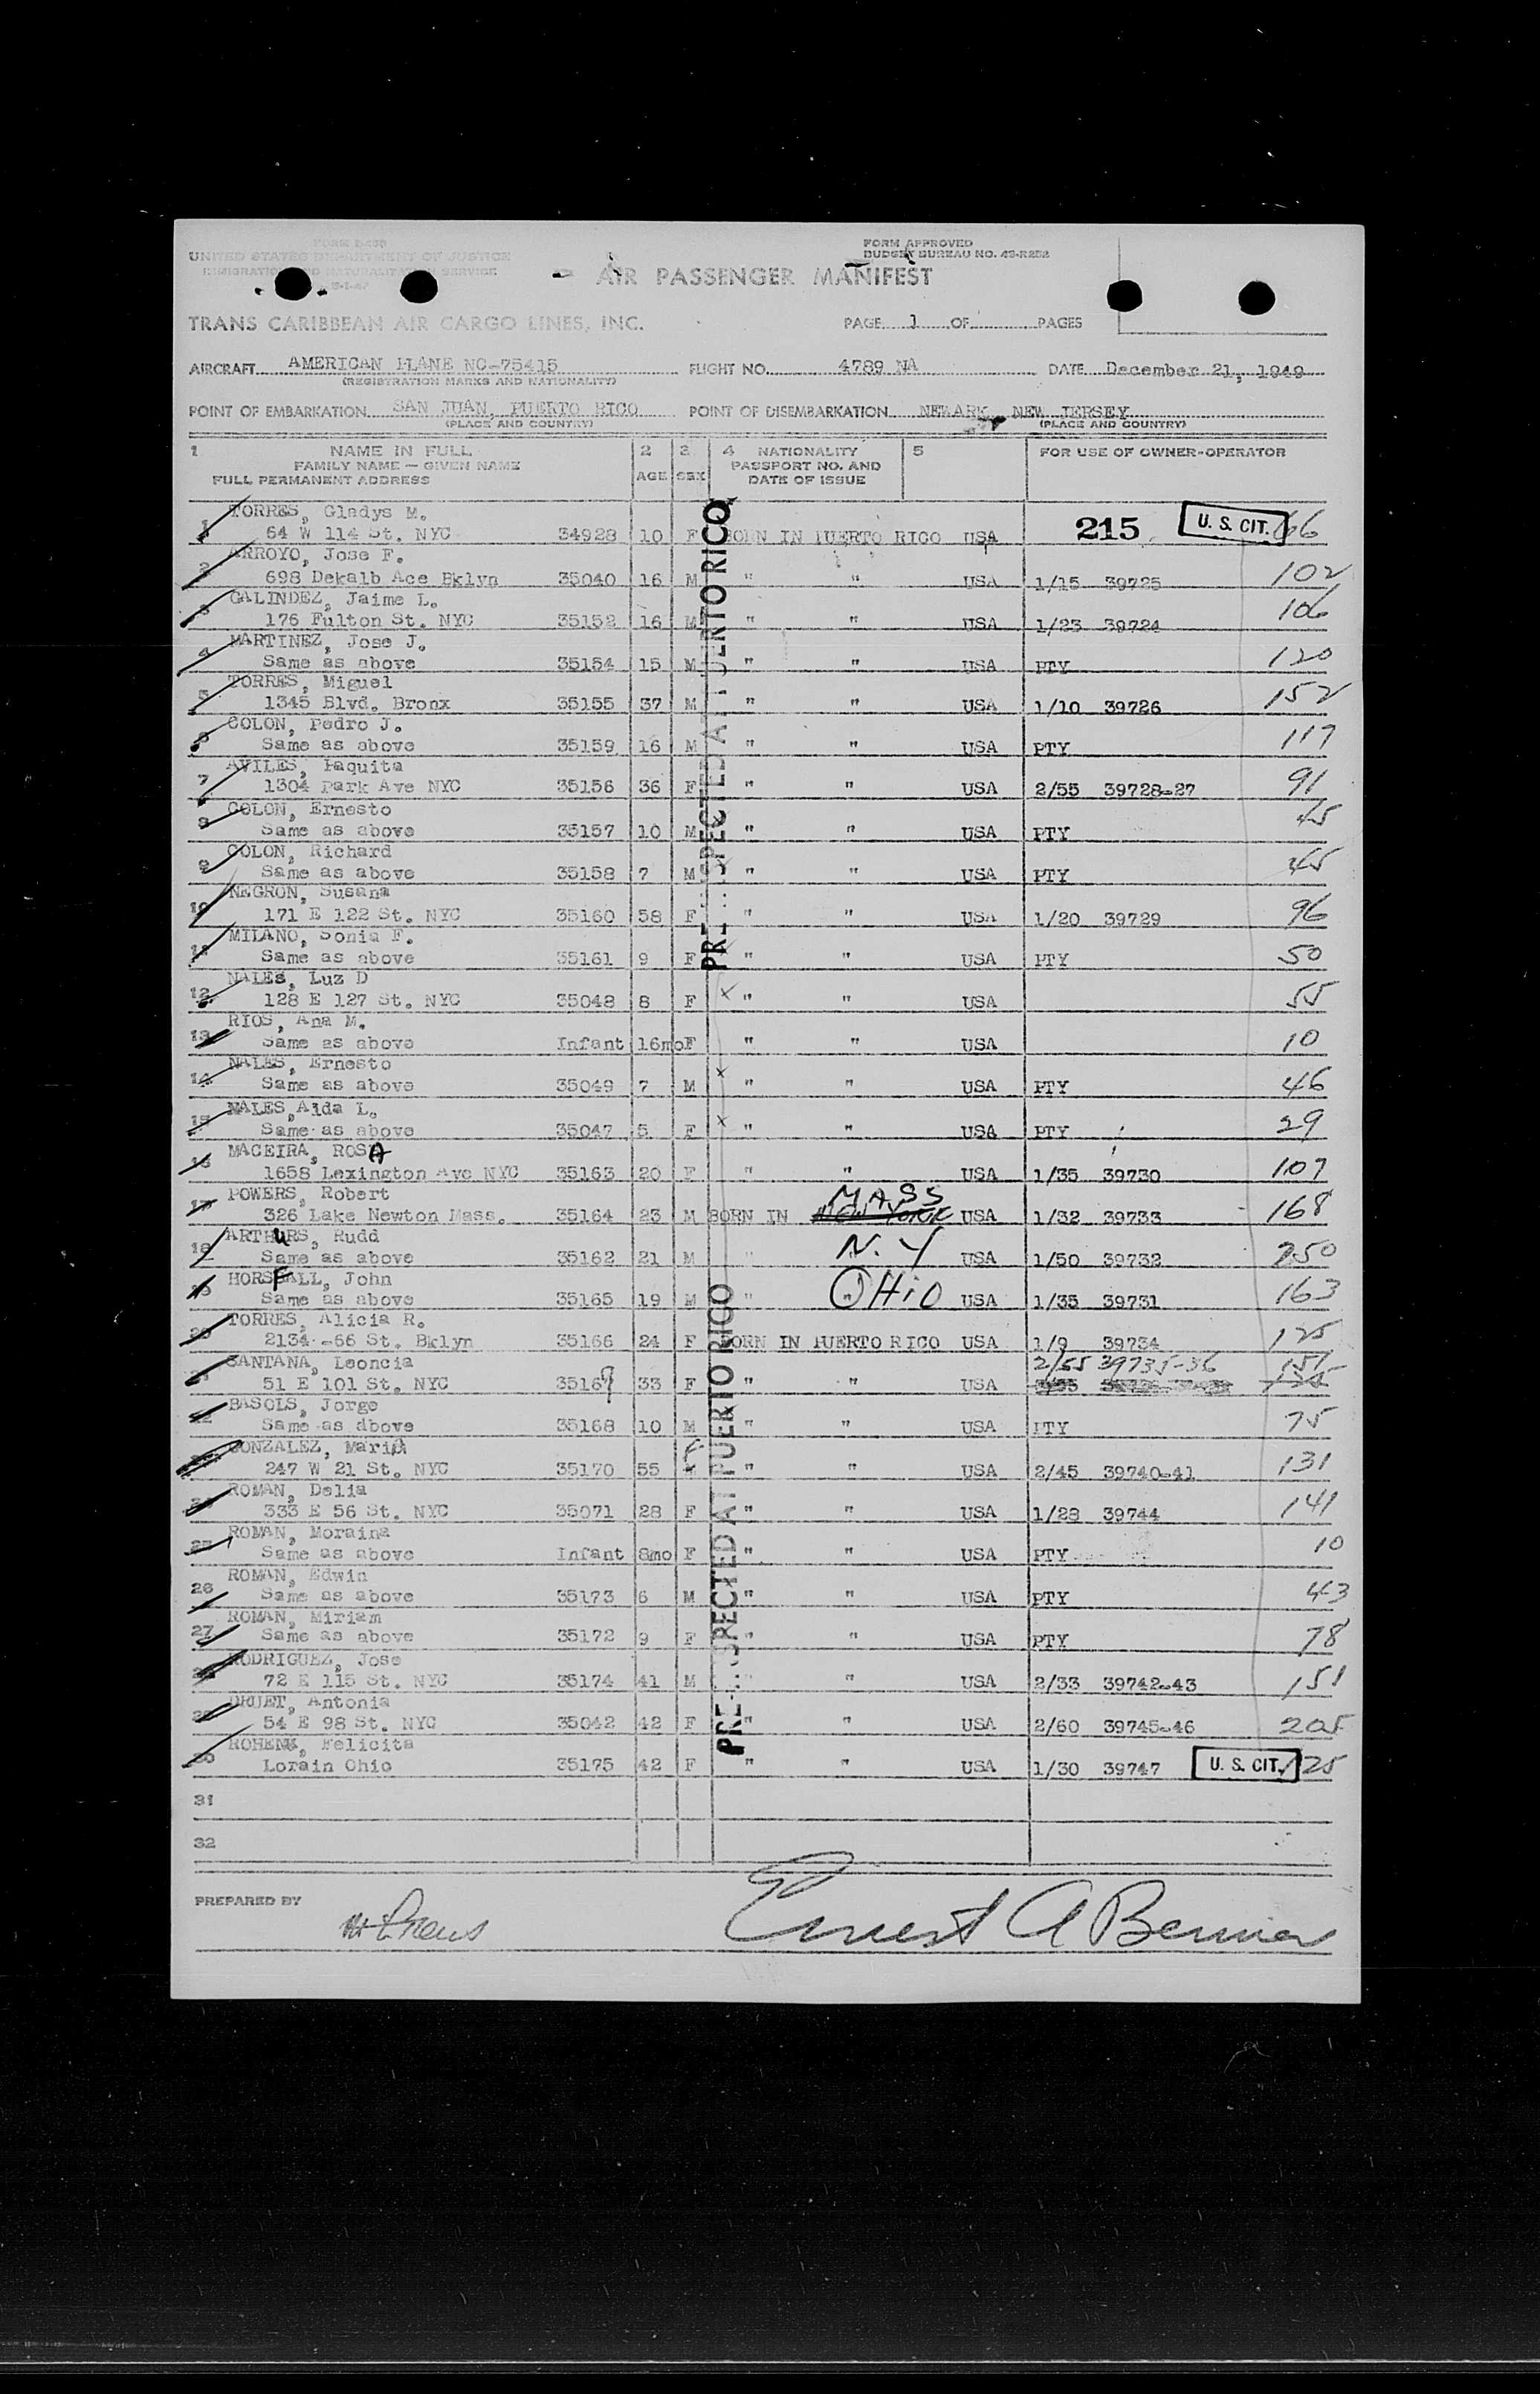 FORM I-466
UNITED STATES DEPARTMENT OF JUSTICE
IMMIGRATION AND NATURALIZATION SERVICE
FORM APPROVED
BUDGET BUREAU NO. 43-R252
AIR PASSENGER MANIFEST
TRANS CARIBBEAN AIR CARGO LINES, INC.
PAGE 1 OF PAGES
AIRCRAFT AMERICAN PLANE NC-75415 FLIGHT NO. 4789 NA DATE December 21, 1949
(REGISTRATION MARKS AND NATIONALITY)
POINT OF EMBARKATION SAN JUAN, PUERTO RICO POINT OF DISEMBARKATION NEWARK, NEW JERSEY
(PLACE AND COUNTRY) (PLACE AND COUNTRY)
1 NAME IN FULL 2 3 4 NATIONALITY 5 FOR USE OF OWNER-OPERATOR
FAMILY NAME — GIVEN NAME AGE SEX PASSPORT NO. AND
FULL PERMANENT ADDRESS DATE OF ISSUE
PRE-INSPECTED AT PUERTO RICO
1 TORRES, Gladys M.
64 W 114 St. NYC 34928 10 F BORN IN PUERTO RICO USA 215 U. S. CIT. 66
2 ARROYO, Jose F.
698 Dekalb Ace Bklyn 35040 16 M " " USA 1/15 39725 102
3 GALINDEZ, Jaime L.
176 Fulton St. NYC 35152 16 M " " USA 1/23 39724 106
4 MARTINEZ, Jose J.
Same as above 35154 15 M " " USA PTY 120
5 TORRES, Miguel
1345 Blvd. Bronx 35155 37 M " " USA 1/10 39726 152
6 COLON, Pedro J.
Same as above 35159 16 M " " USA PTY 117
7 AVILES, Paquita
1304 Park Ave NYC 35156 36 F " " USA 2/55 39728-27 91
8 COLON, Ernesto
Same as above 35157 10 M " " USA PTY
9 COLON, Richard
Same as above 35158 7 M " " USA PTY 45
10 NEGRON, Susana
171 E 122 St. NYC 35160 58 F " " USA 1/20 39729 96
11 MILANO, Sonia F.
Same as above 35161 9 F " " USA PTY 50
12 NALES, Luz D
128 E 127 St. NYC 35048 8 F x " " USA 55
13 RIOS, Ana M.
Same as above Infant 16mo F " " USA 10
14 NALES, Ernesto
Same as above 35049 7 M x " " USA PTY 46
15 NALES, Aida L.
Same as above 35047 5 F x " " USA PTY 29
16 MACEIRA, ROSA
1658 Lexington Ave NYC 35163 20 F " " USA 1/35 39730 107
17 POWERS, Robert MASS
326 Lake Newton Mass. 35164 23 M BORN IN NEW YORK USA 1/32 39733 168
18 ARTHURS, Rudd
Same as above 35162 21 M " N.Y USA 1/50 39732 250
19 HORSFALL, John
Same as above 35165 19 M " OHiO USA 1/35 39731 163
20 TORRES, Alicia R.
2134 -66 St. Bklyn 35166 24 F BORN IN PUERTO RICO USA 1/9 39734 125
21 SANTANA, Leoncia 2/55 39735-36 151
51 E 101 St. NYC 35169 33 F " " USA
22 BASOLS, Jorge
Same as above 35168 10 M " " USA PTY 75
23 GONZALEZ, Maria
247 W 21 St. NYC 35170 55 F " " USA 2/45 39740-41 131
24 ROMAN, Delia
333 E 56 St. NYC 35071 28 F " " USA 1/28 39744 141
25 ROMAN, Moraina
Same as above Infant 8mo F " " USA PTY 10
26 ROMAN, Edwin
Same as above 35173 6 M " " USA PTY 43
27 ROMAN, Miriam
Same as above 35172 9 F " " USA PTY 78
28 RODRIGUEZ, Jose
72 E 115 St. NYC 35174 41 M " " USA 2/33 39742-43 151
29 DRUET, Antonia
54 E 98 St. NYC 35042 42 F " " USA 2/60 39745-46 205
30 ROHENA, Felicita
Lorain Ohio 35175 42 F " " USA 1/30 39747 U. S. CIT. 125
PRE-INSPECTED AT PUERTO RICO
31
32
PREPARED BY
Ernest A